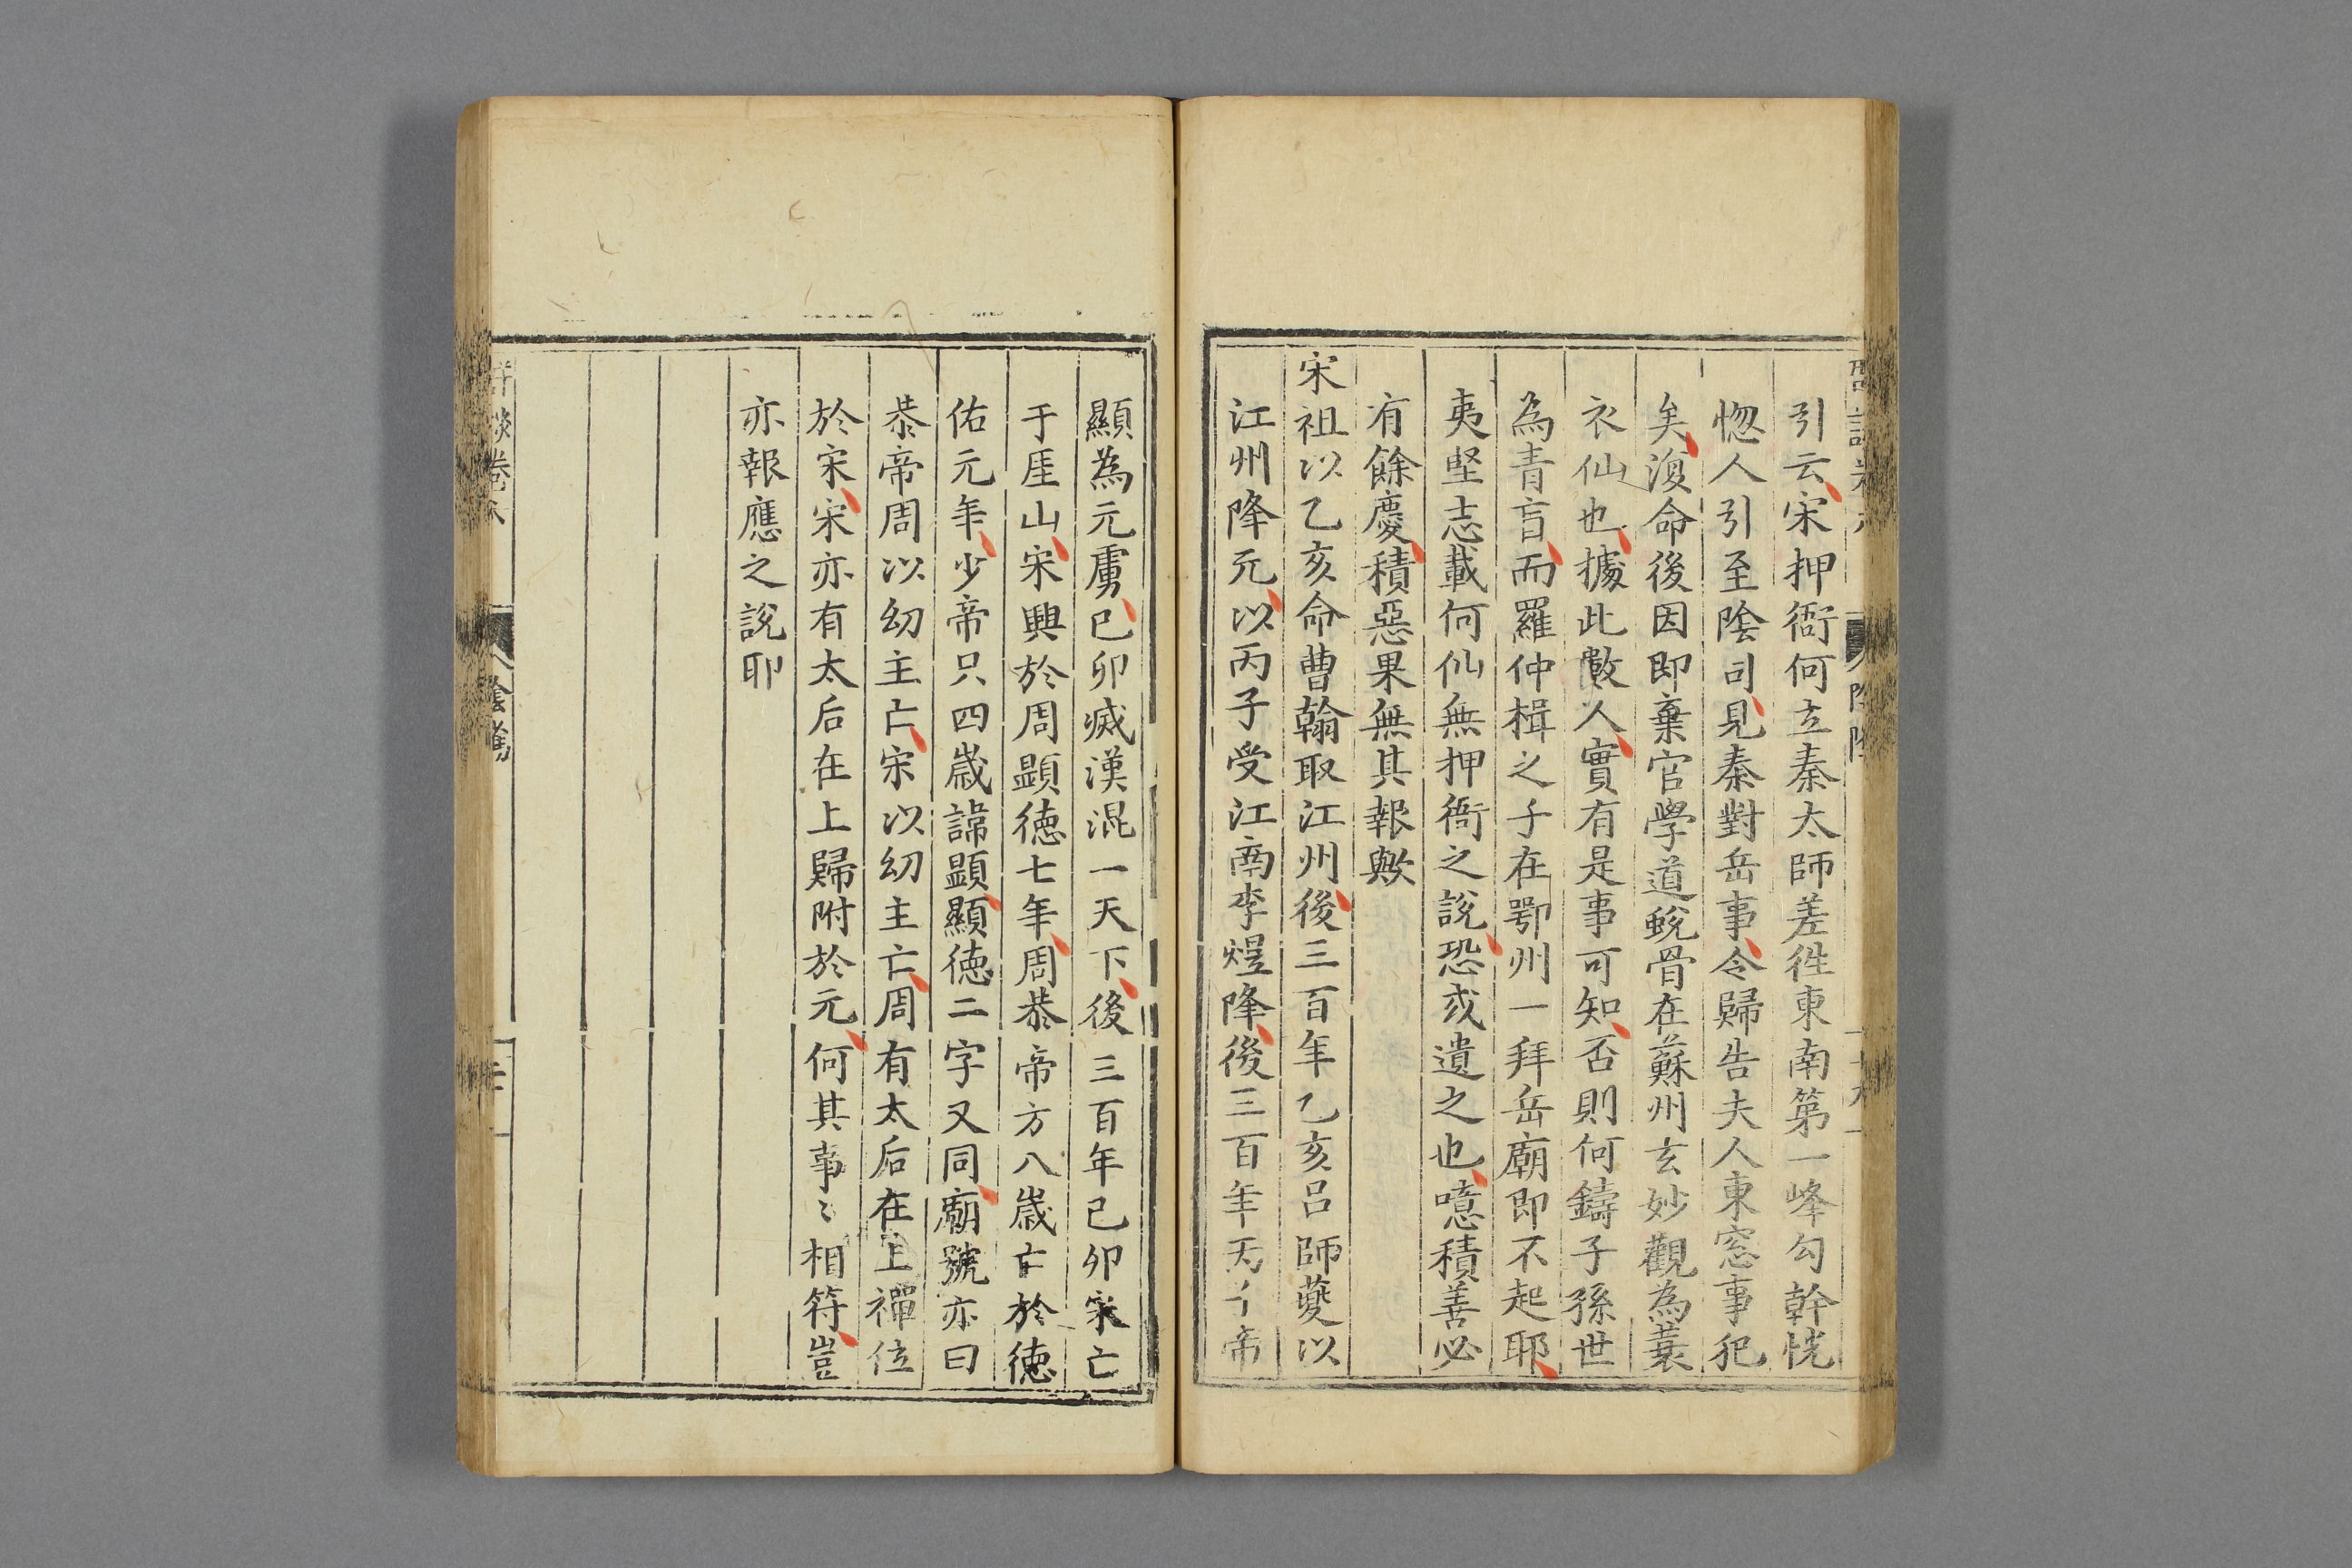 引云宋押衙何立秦太師差徃東南第一峰勾幹恍
惚人引至陰司見秦對岳事令歸告夫人東窓事犯
矣復命後因即棄官學道蛻骨在蘇州玄妙觀為蓑
衣仙也據此數人實有是事可知否則何鑄子孫世
為青盲而羅仲楫之子在鄂州一拜岳廟即不起耶
夷堅志載何仙無押衙之說恐或遺之也噫積善必
有餘慶積惡果無其報歟
宋祖以乙亥命曹翰取江州後三百年乙亥呂師夔以
江州降元以丙子受江南李煜降後三百年丙子帝
顯為元虜已卯㓕漢混一天下後三百年已卯宋亡
于厓山宋興於周顕徳七年周恭帝方八歲亡於徳
佑元年少帝只四歲諱顕顯徳二字又同廟號亦曰
恭帝周以幼主亡宋以幼主亡周有太后在上禪位
於宋宋亦有太后在上歸附於元何其事〻相符豈
亦報應之說耶